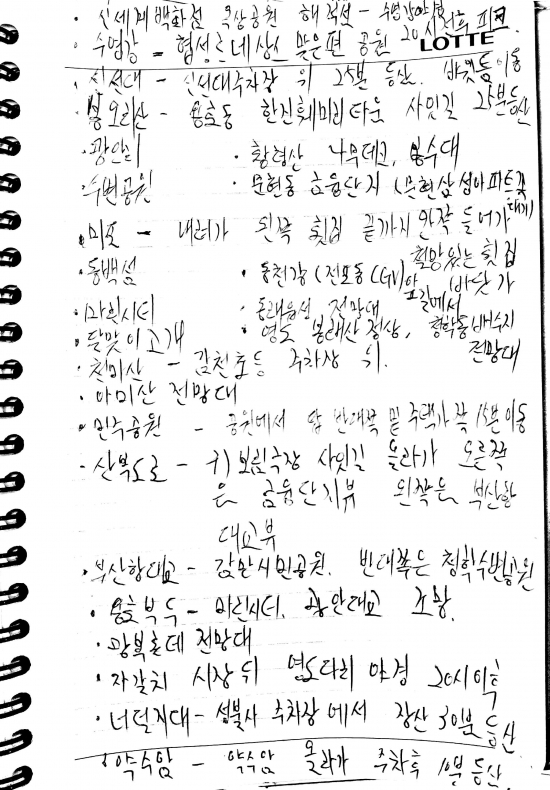 · 신세계백화점 옥상공원 해질녘 - 수영강야경
· 수영강 - 협성르네상스 맞은편 공원 20시전후 피크
LOTTE
· 신선대 - 신선대주차장 위 25분 등산. 바닷듬이동
· 봉오리산 - 용호동 한진훼미리타운 사잇길 25분등산
· 광안리 · 황령산 나무데크, 봉수대
· 수변공원 · 문현동 금융단지 (문현삼성아파트꼭대기)
· 미포 - 내려가 왼쪽 횟집 끝까지 안쪽 들어가 희망있는 횟집 앞 바닷가
· 동백섬 · 동천강 (전포동 CGV) 길에서
· 마린시티 · 동래읍성 전망대
· 달맞이고개 · 영도 봉래산정상, 청학동배수지 전망대
· 천마산 - 감천초등 주차장 뒤.
· 아미산 전망대
· 민주공원 - 공원에서 탑 반대쪽 밑 주택가쪽 15분이동
· 산복도로 - 구) 보림극장 사잇길 올라가 오른쪽
은 금융단지뷰 왼쪽은 부산항
대교뷰
· 부산항대교 - 감만시민공원. 반대쪽은 청학수변공원
· 용호부두 - 마린시티. 광안대교 조망.
· 광복롯데 전망대
· 자갈치 시장 뒤 영도다리 야경 20시이후
· 너덜지대 - 성불사 주차장에서 장산 30분 등산
· 약수암 - 약수암 올라가 주차후 10분 등산.